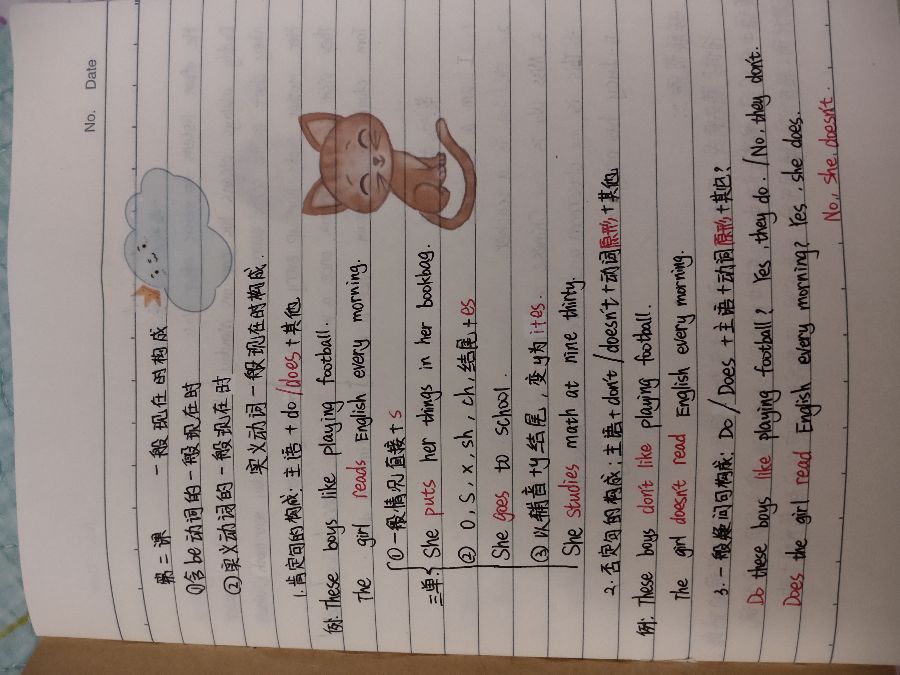 No.
Date
第二课 一般现在的构成
①含be动词的一般现在时
②实义动词的一般现在时
实义动词一般现在时的构成.
1.肯定句的构成: 主语+do/does+其他
例: These boys like playing football.
The girl reads English every morning.
三单:
①一般情况直接+s
She puts her things in her bookbag.
② o, s, x, sh, ch, 结尾+es
She goes to school.
③以辅音+y结尾, 变y为ites.
She studies math at nine thirty.
2.否定句的构成: 主语+don't/doesn't+动词原形+其他
例: These boys don't like playing football.
The girl doesn't read English every morning.
3.一般疑问句构成: Do/Does+主语+动词原形+其它?
Do these boys like playing football? Yes, they do. /No, they don't.
Does the girl read English every morning? Yes, she does.
No, she doesn't.